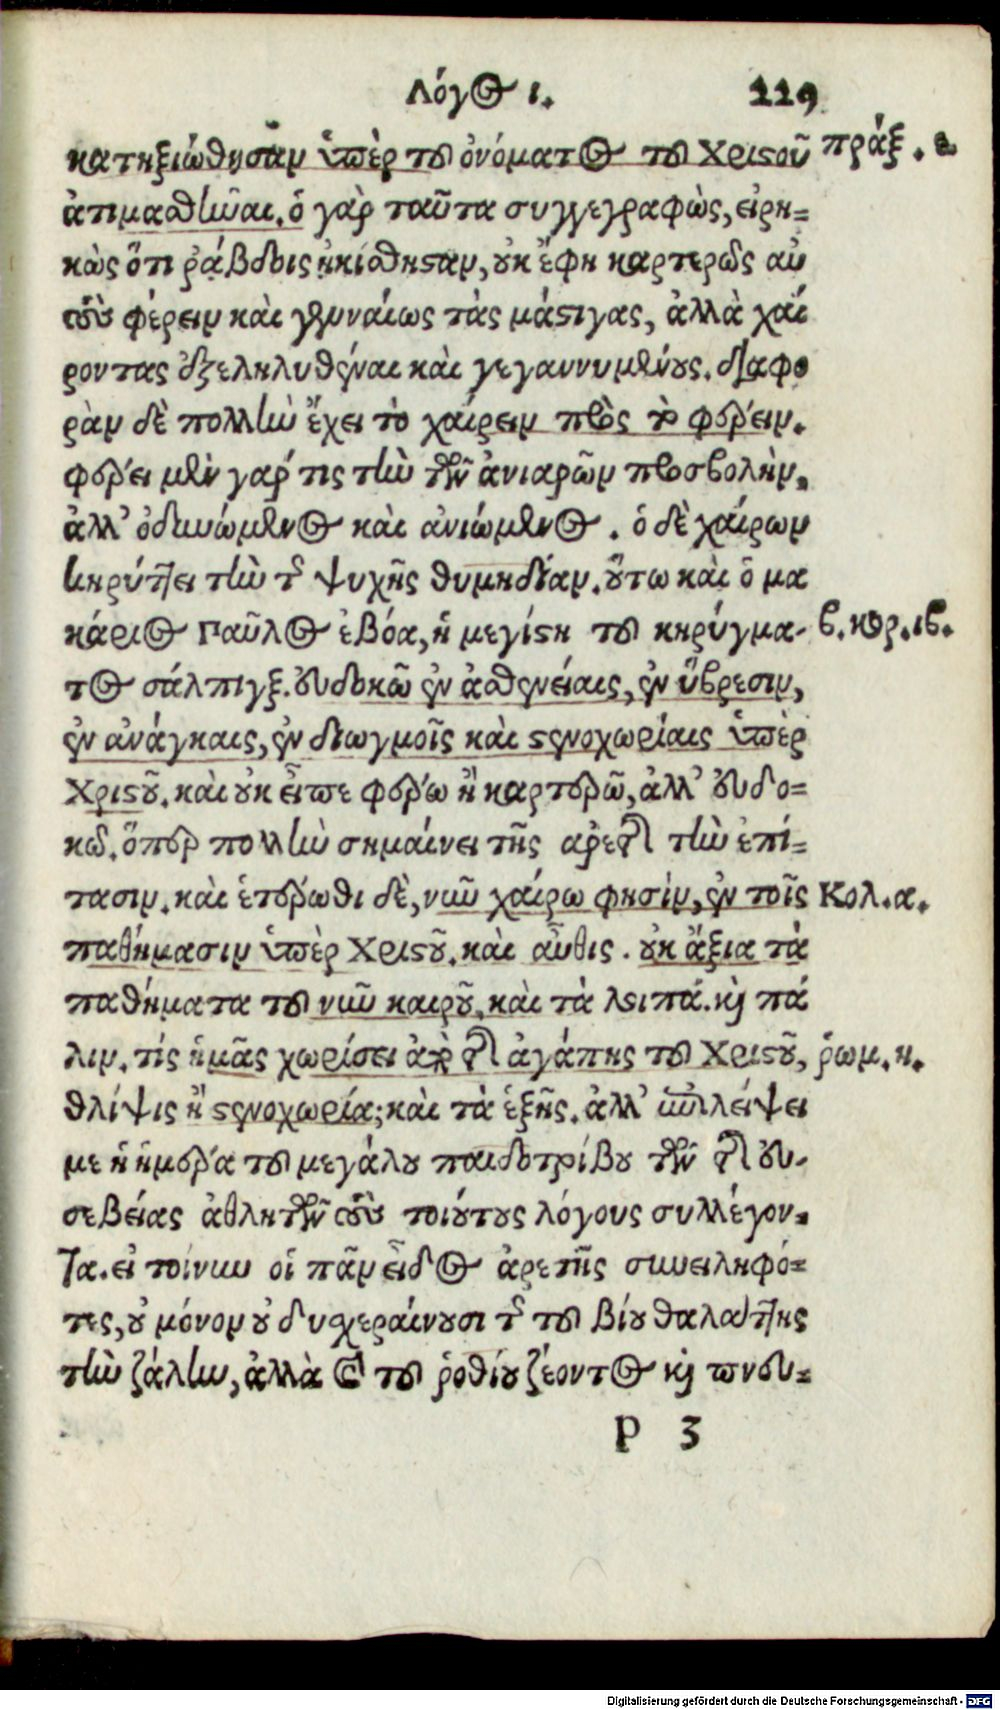 Λόγος ι. 229
κατηξιώθησαν ὑπὲρ τοῦ ὀνόματος τοῦ Χριστοῦ πράξ. ε
ἀτιμασθῆναι. ὁ γὰρ ταῦτα συγγεγραφὼς, εἰρη=
κὼς ὅτι ῥάβδοις ᾐκίσθησαν, οὐκ ἔφη καρτερῶς αὐ
τοὺς φέρειν καὶ γενναίως τὰς μάστιγας, ἀλλὰ χαί
ροντας ἐξεληλυθέναι καὶ γεγαννυμένους. διαφο
ρὰν δὲ πολλὴν ἔχει τὸ χαίρειν πρὸς τὸ φέρειν.
φέρει μὲν γάρ τις τὴν τῶν ἀνιαρῶν προσβολὴν,
ἀλλ' ὀδυνώμενος καὶ ἀνιώμενος. ὁ δὲ χαίρων
κηρύττει τὴν τῆς ψυχῆς θυμηδίαν. οὕτω καὶ ὁ μα
κάριος Παῦλος ἐβόα, ἡ μεγίστη τοῦ κηρύγμα- β. κορ. ιβ.
τος σάλπιγξ. εὐδοκῶ ἐν ἀσθενείαις, ἐν ὕβρεσιν,
ἐν ἀνάγκαις, ἐν διωγμοῖς καὶ στενοχωρίαις ὑπὲρ
Χριστοῦ. καὶ οὐκ εἶπε φέρω ἢ καρτερῶ, ἀλλ' εὐδο=
κῶ. ὅπερ πολλὴν σημαίνει τῆς ἀρετῆς τὴν ἐπί=
τασιν. καὶ ἑτέρωθι δὲ, νῦν χαίρω φησὶν, ἐν τοῖς Κολ. α.
παθήμασιν ὑπὲρ Χριστοῦ. καὶ αὖθις. οὐκ ἄξια τὰ
παθήματα τοῦ νῦν καιροῦ, καὶ τὰ λειπά. καὶ πά
λιν. τίς ἡμᾶς χωρίσει ἀπὸ τῆς ἀγάπης τοῦ Χριστοῦ, ῥωμ. η.
θλίψις ἢ στενοχωρία; καὶ τὰ ἑξῆς. ἀλλ' ἐπιλείψει
με ἡ ἡμέρα τοῦ μεγάλου παιδοτρίβου τῶν τῆς εὐ-
σεβείας ἀθλητῶν τοὺς τοιούτους λόγους συλλέγον=
τα. εἰ τοίνυν οἱ πᾶν εἶδος ἀρετῆς συνειληφό=
τες, οὐ μόνον οὐ δυσχεραίνουσι τῆς τοῦ βίου θαλάττης
τὴν ζάλην, ἀλλὰ καὶ τοῦ ῥοθίου ζέοντος καὶ πνευ=
P 3
Digitalisierung gefördert durch die Deutsche Forschungsgemeinschaft - DFG